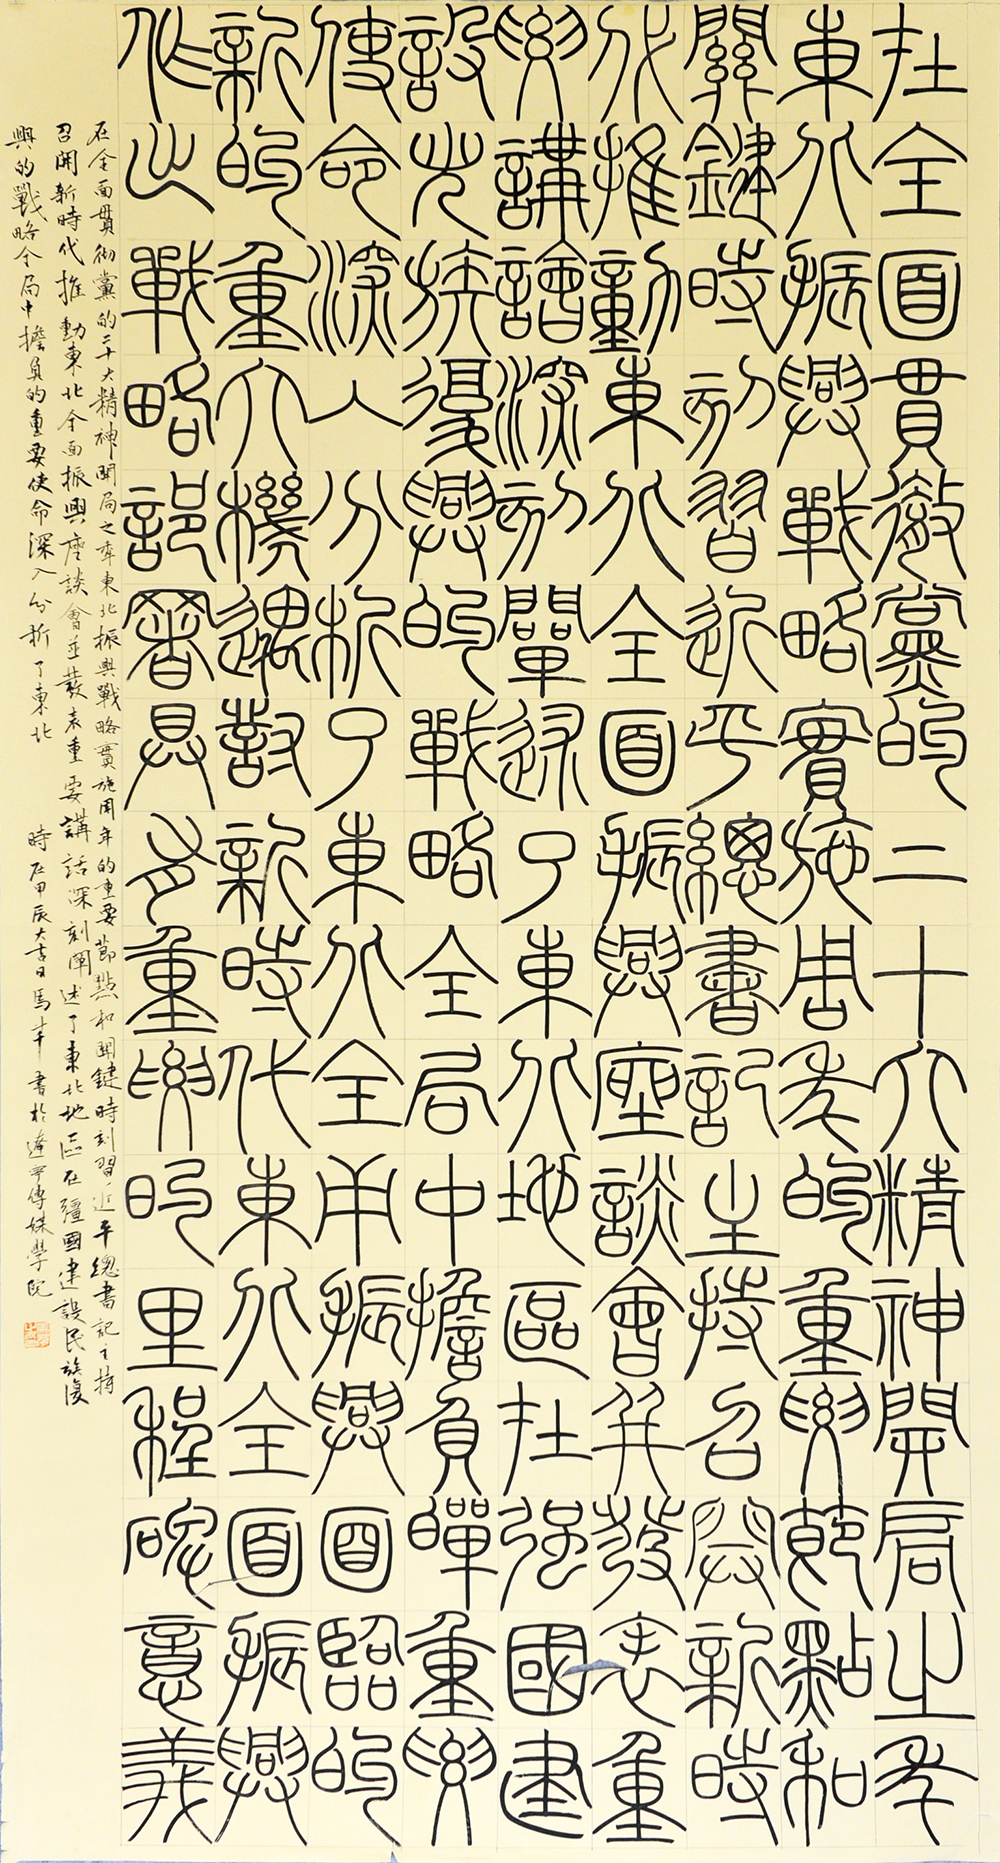 在全面貫徹黨的二十大精神開局之年
東北振興戰略實施周年的重要節點和
關鍵時刻習近平總書記主持召開新時
代推動東北全面振興座談會并發表重
要講話深刻闡述了東北地區在强國建
設民族復興的戰略全局中擔負重要
使命深入分析了東北全振興面臨的
新的重大機遇新時代東北全面振興
作出戰略部署具有重要的里程碑意義
在全面貫彻黨的二十大精神開局之年東北振興戰略實施周年的重要節點和関鍵時刻習近平總書記主持
召開新時代推動東北全面振興座談會並發表重要講話深刻闡述了東北地區在疆國建設民族復
興的戰略全局中擔負的重要使命深入分析了東北 時在甲辰大吉日馬丰書於遼寧傳媒學院